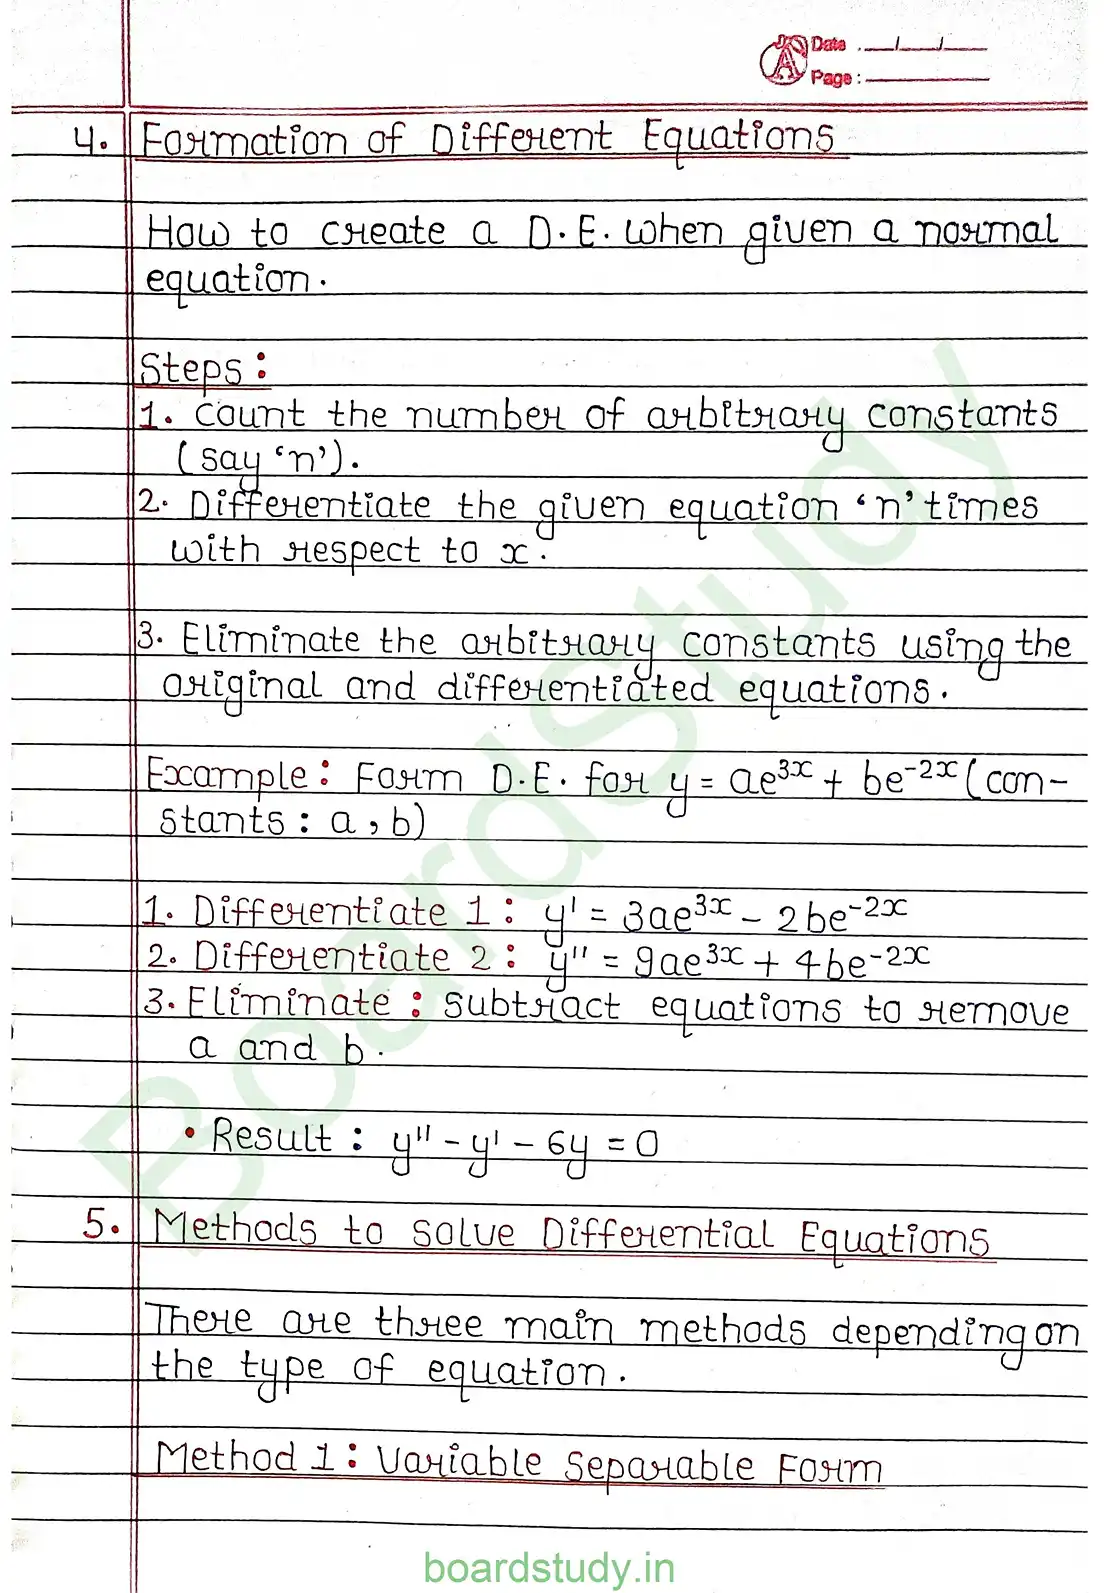 Date : __/__/__
Page : ____
4. Formation of Different Equations
How to create a D.E. when given a normal
equation.
Steps :
1. Count the number of arbitrary constants
(say 'n').
2. Differentiate the given equation 'n' times
with respect to x.
3. Eliminate the arbitrary constants using the
original and differentiated equations.
Example : Form D.E. for y = ae³ˣ + be⁻²ˣ (con-
stants : a, b)
1. Differentiate 1 : y' = 3ae³ˣ - 2be⁻²ˣ
2. Differentiate 2 : y'' = 9ae³ˣ + 4be⁻²ˣ
3. Eliminate : subtract equations to remove
a and b.
• Result : y'' - y' - 6y = 0
5. Methods to solve Differential Equations
There are three main methods depending on
the type of equation.
Method 1 : Variable Separable Form
BoardStudy
boardstudy.in